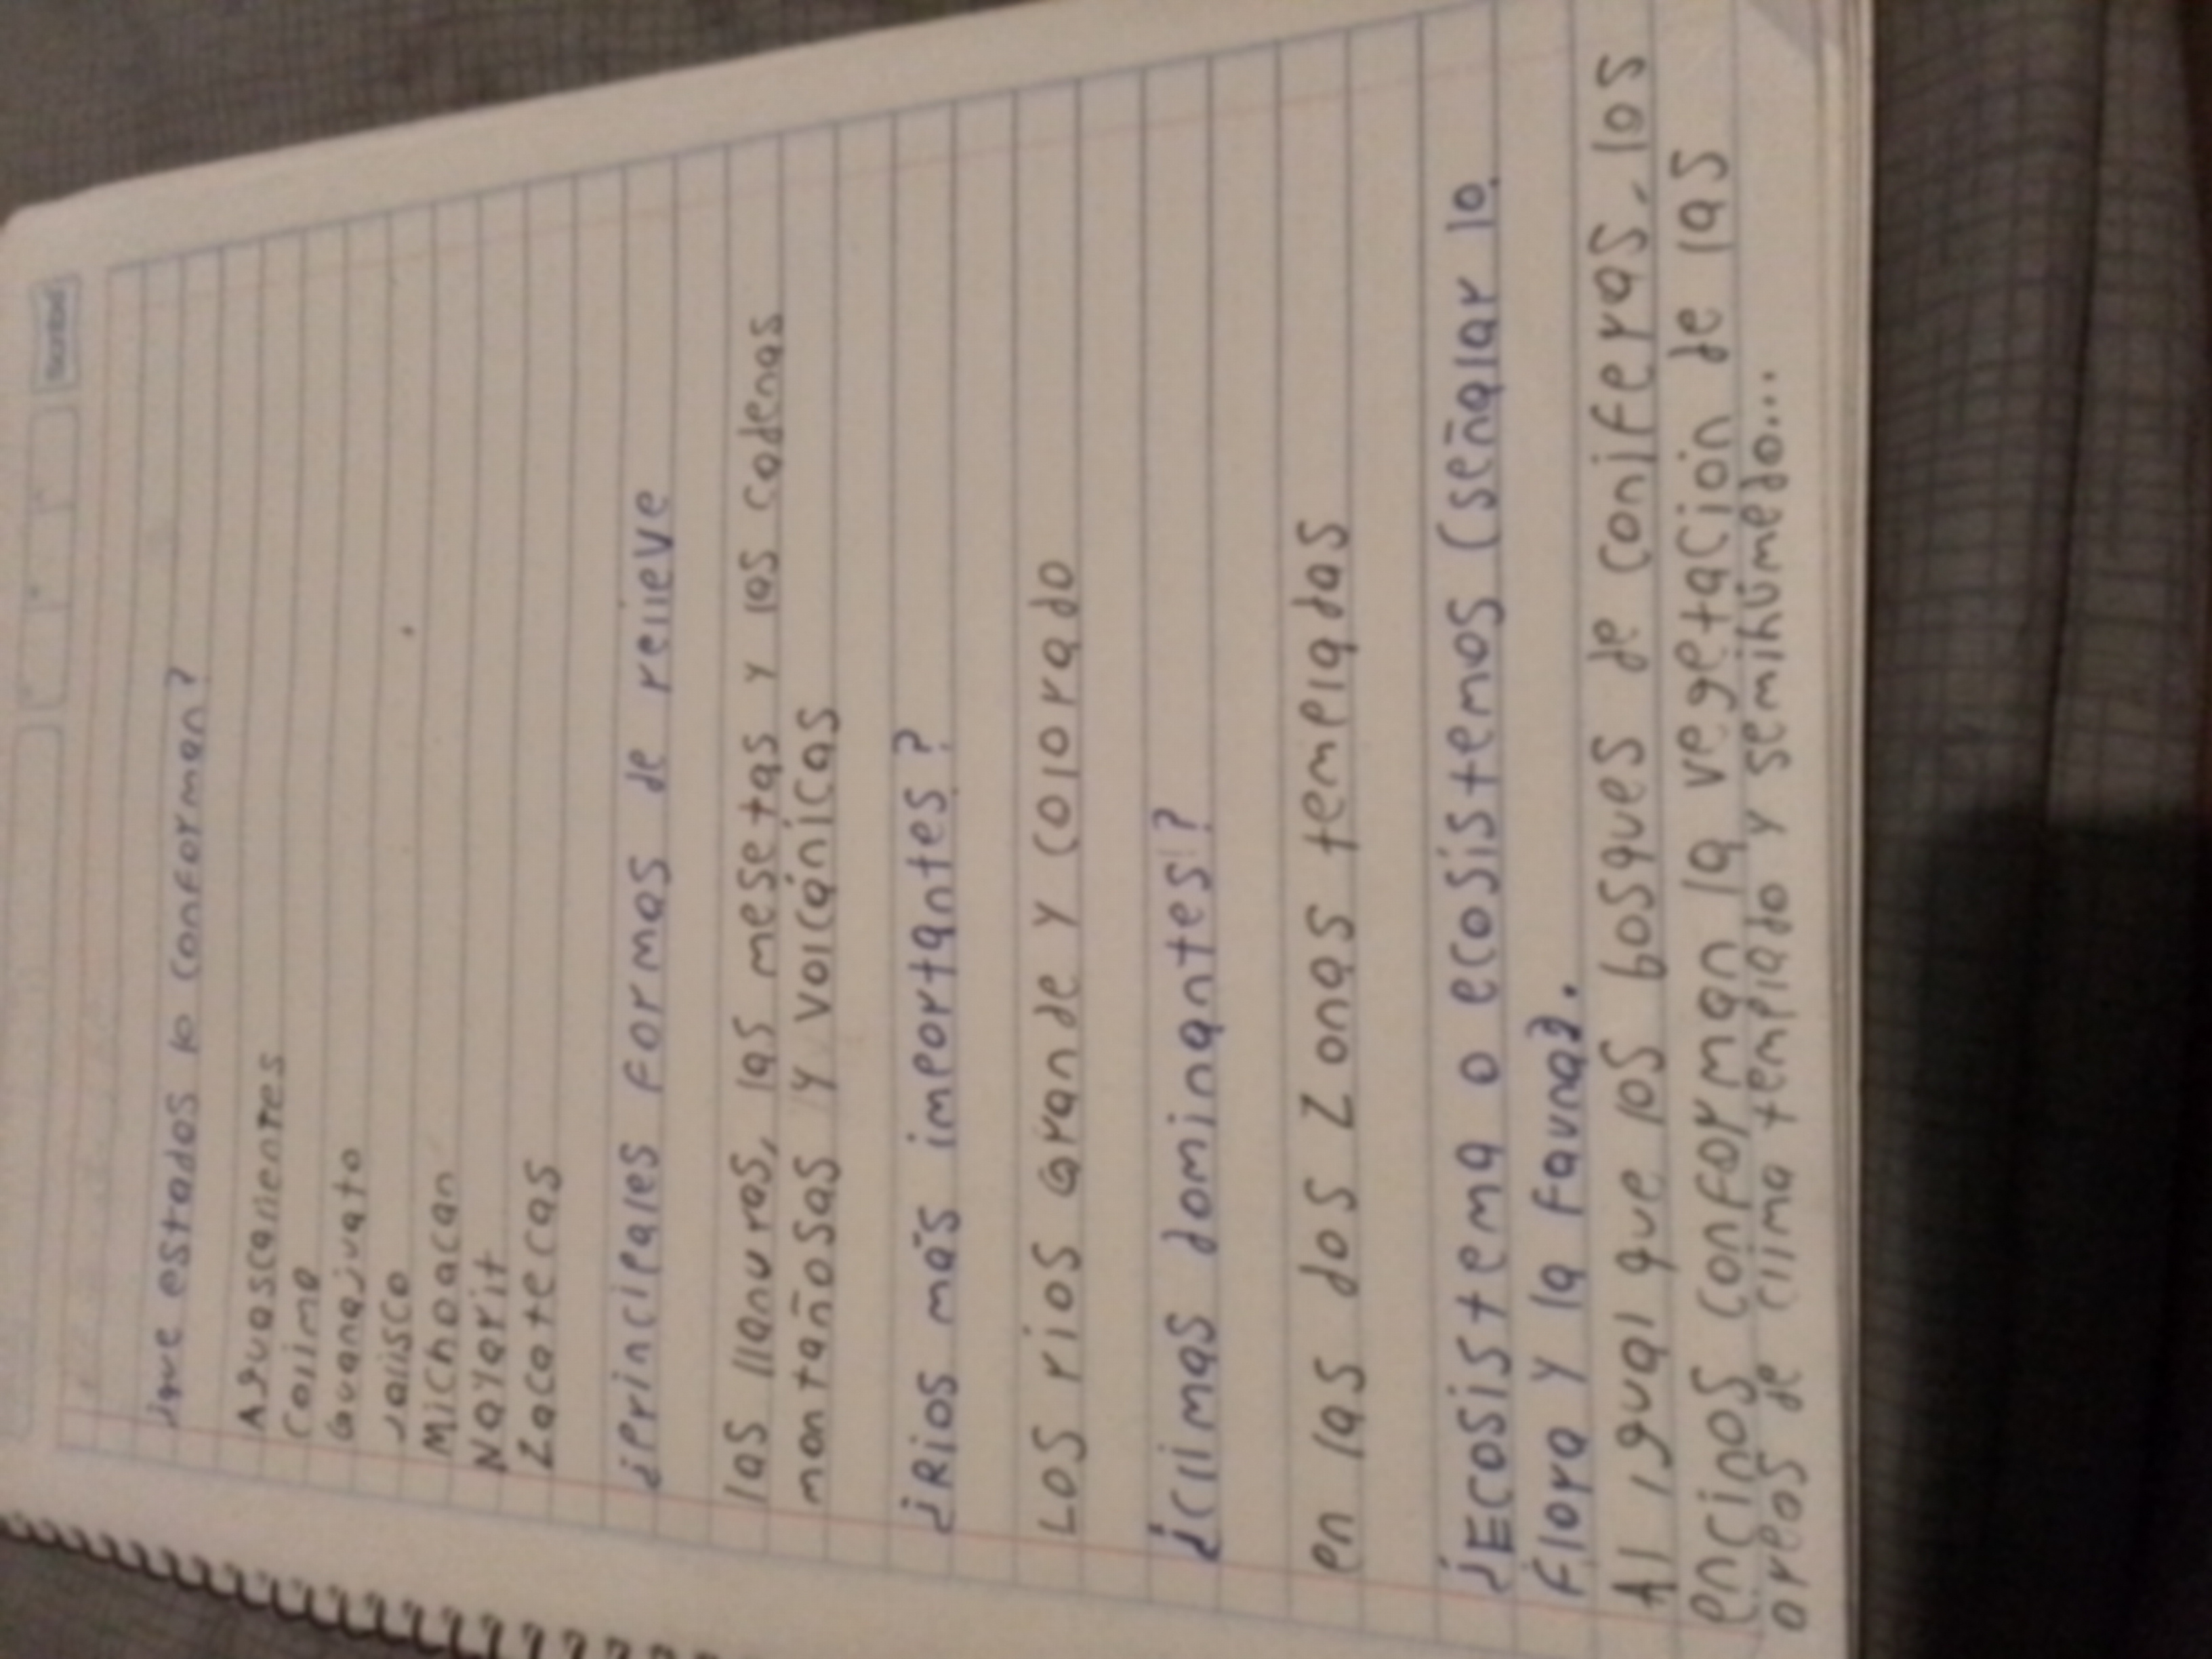 Scribe
¿que estados lo conforman?
Aguascalientes
Colima
Guanajuato
Jalisco
Michoacan
Nayarit
Zacatecas
¿principales formas de relieve
las llanuras, las mesetas y las cadenas
montañosas y volcánicas
¿Rios más importantes?
Los rios Grande y Colorado
¿climas dominantes?
en las dos zonas templadas
¿Ecosistema o ecosistemas (señalar la
flora y la fauna?.
Al igual que los bosques de coniferas, los
encinos conforman la vegetación de las
areas de clima templado y semihúmedo...